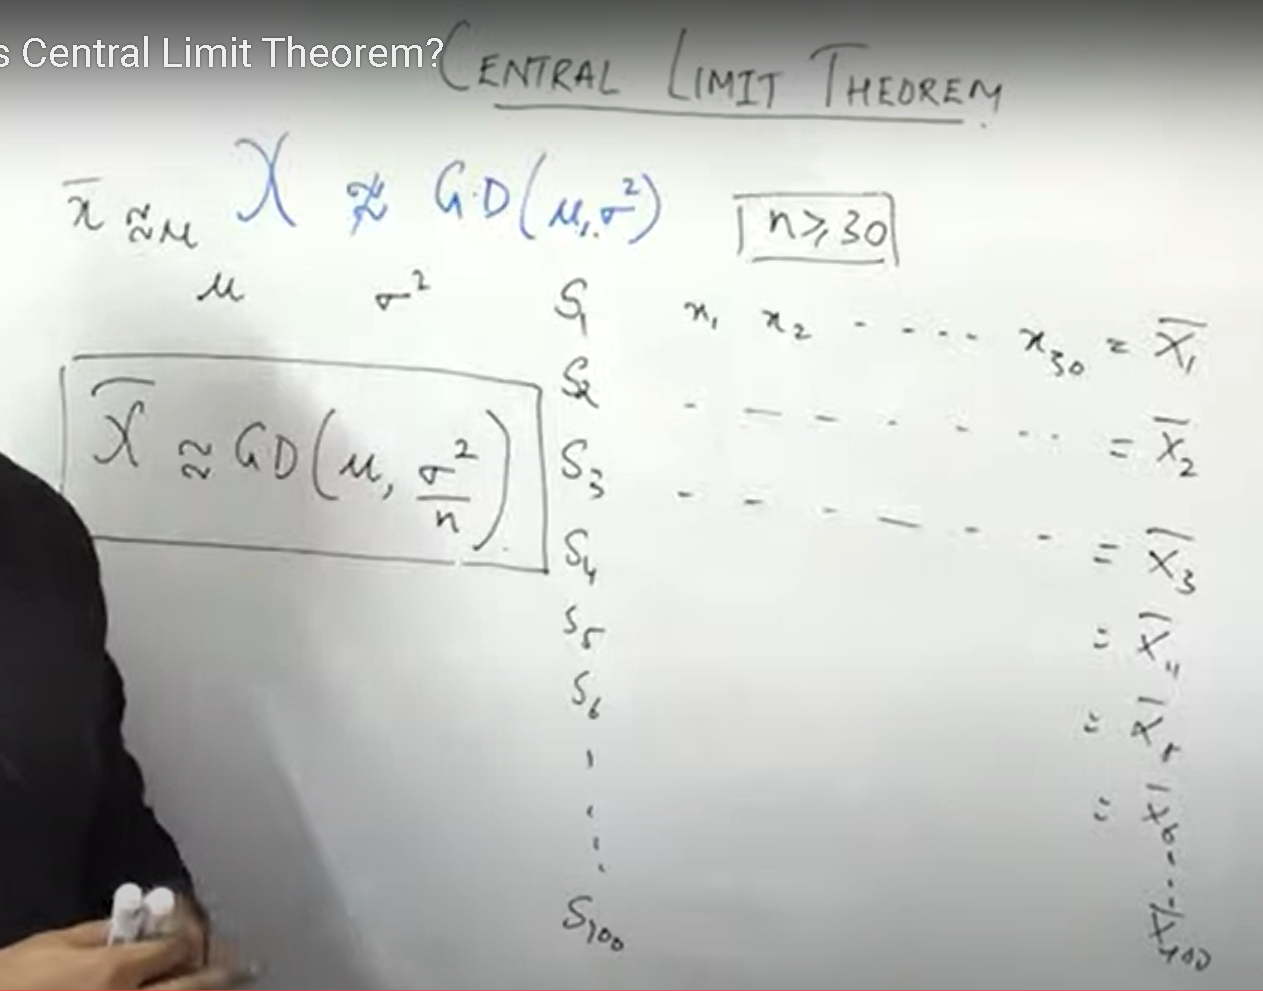 s Central Limit Theorem?
CENTRAL LIMIT THEOREM
x̄ ≈ μ X ≉ G.D(μ, σ²) n ≥ 30
μ σ²
S₁ x₁ x₂ - - - - - x₃₀ = X̄₁
S₂ - - - - - - - = X̄₂
X̄ ≈ GD(μ, σ²/n)
S₃ - - - - - - = X̄₃
S₄ = X̄₄
S₅ = X̄₅
S₆ = X̄₆
S₁₀₀ X̄₁₀₀